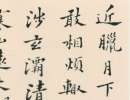 近臘月下
敢相煩輒
涉玄灞清